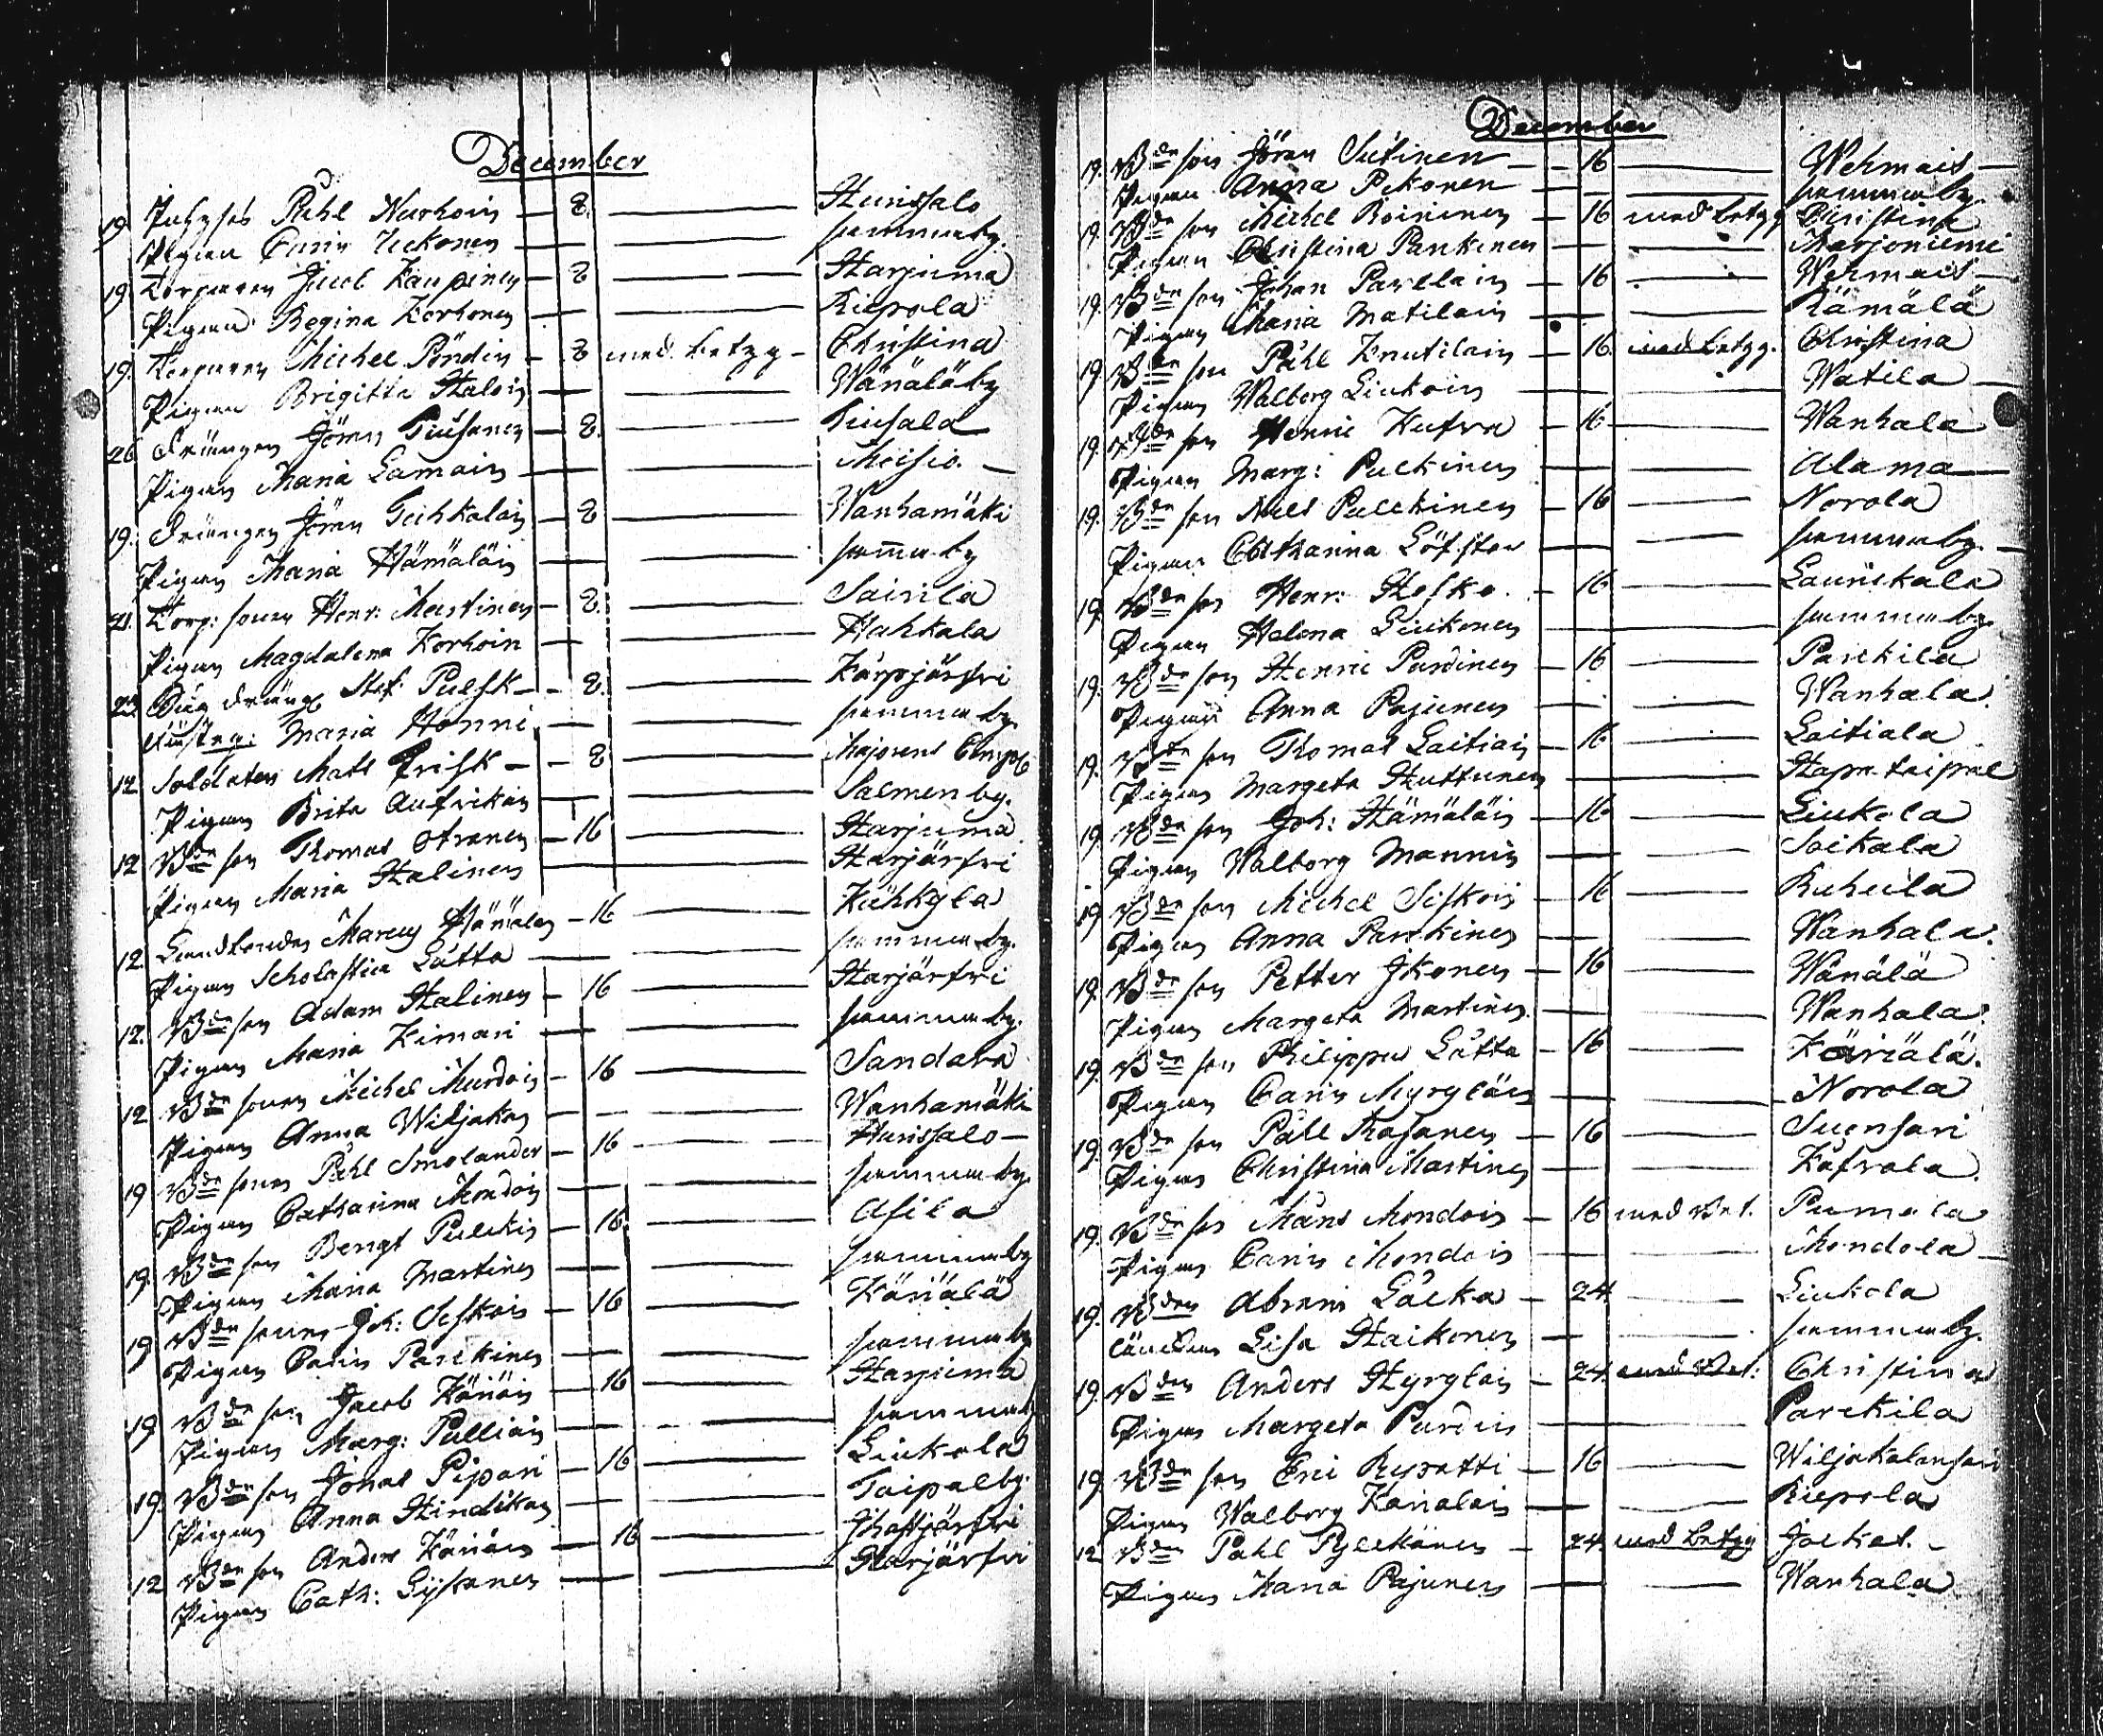 December
19. Inhyses Påhl Nurhoin — 8. — Hurissalo
Pigan Carin Uckonen — — sammaby.
19. Torparen Jacob Kaupinen — 8 — — Harjuma
Pigan Regina Korhonen — — Riepola
19. Torparen Michel Pöndin — 8 med betyg — Christina
Pigan Brigitta Haloin — — Wänäläby
26 Drängen Jöran Tiusanen — 8. — Kusala
Pigan Maria Lamain — — Moisio. —
19. Drängen Jöran Teihkalain — 8 — Wanhamäki
Pigan Maria Hämäläin — — samma by
21. Torp: sonen Henr: Martinen — 8. — Sairila
Pigan Magdalena Korhoin — — Hahkala
23. dräng Stef: Pulsk — — 8. — Karpjärfvi
Maria Honni — — samma by.
12 Soldaten Mats Frisk — — 8 — Majorens Comp
Pigan Brita Aufvikain — — Salmen by.
12 Bde son Thomas Otranen — 16 — Harjuma
Pigan Maria Halinen — Harjärfvi
12. Landbonden Marcus Hämäläin — 16 — Kühkylä
Pigan Scholastica Låtta — — sammaby.
12. Bde son Adam Halinen — 16 — Harjärfvi
Pigan Maria Kimari — — sammaby.
12 Bde sonen Michel Murdoin — 16 — Sandala
Pigan Anna Wiljakain — — Wanhamäki
19 Bde sonen Påhl Smolander — 16 — Hurissalo —
Pigan Catharina Mondoin — — sammaby.
19. Bde son Bengt Pulckin — 16. — Asila
Pigan Maria Martinen — — sammaby
19 Bde sonen Joh: Siskoin — 16 — Käriälä
Pigan Carin Parckinen — — sammaby
19 Bde son Jacob Käriäin — 16 — Harjuma
Pigan Marg: Pulliain — — sammaby
19. Bde son Jonas Pipari — 16 — Liukola
Pigan Anna Hindikain — — Taipalby.
12 Bde son Anders Käriäin — 16 — Ihastjärfvi
Pigan Cath: Lyytinen — — Harjärfvi
December
19. Bde son Jöran Sutinen — — 16 — Wehmais —
Pigan Anna Pekonen — — sammaby.
19. Bde son Michel Roininen — 16 med betyg Christina
Pigan Christina Pankinen — — Karjoniemi
19. Bde son Johan Parllain — 16 — Wehmais —
Pigan Maria Matilain — — Rämälä
19 Bde son Påhl Knutilain — 16. med betyg. Christina
Pigan Walborg Liukoin — — Watila —
19. Bde son Henric Kufva — 16 — Wanhala
Pigan Marg: Puckinen — — Alama —
19. Bde son Nils Pulckinen — 16 — Norola
Pigan Catharina Löfström — — sammaby. —
19. Bde son Henr: Hosko. — 16 — Laurikala
Pigan Helena Liukonen — — sammaby.
19. Bde son Henric Pardinen — 16 — Parckila
Pigan Anna Pajunen — — Wanhala.
19. Bde son Thomas Laitiain — 16 — Laitiala
Pigan Margeta Huttunen — — Hapataipal
19. Bde son Joh: Hämäläin — 16 — Liukola
Pigan Walborg Mannin — — Soikala
19. Bde son Michel Siskoin — 16 — Ruheila
Pigan Anna Parckinen — — Wanhala.
19. Bde son Petter Ikonen — 16 — Wänälä
Pigan Margeta Martinen. — — Wanhala.
19. Bde son Philippus Låtta — 16 — Käriälä.
Pigan Carin Myryläin — — Norola
19. Bde son Påhl Thasanen — 16 — Suensari
Pigan Christina Martinen — — Kåfvala
19. Bde son Måns Mondoin — 16 med Bet. Pumala
Pigan Carin Mondoin — — Mondola —
19. Bden Abram Låcka — 24. — Liukola
Lisa Haikonen — — sammaby.
19. Bden Anders Hyryläin — 24. med Bet: Christina
Pigan Margeta Pardin — — Parckila
19 Bde son Eric Ryvatti — 16 — Wiljakalansari
Pigan Walborg Karialain — — Riepola
12 Bden Påhl Pylckänen — 24. med betyg Jockas. —
Pigan Maria Pajunen — — Wanhala